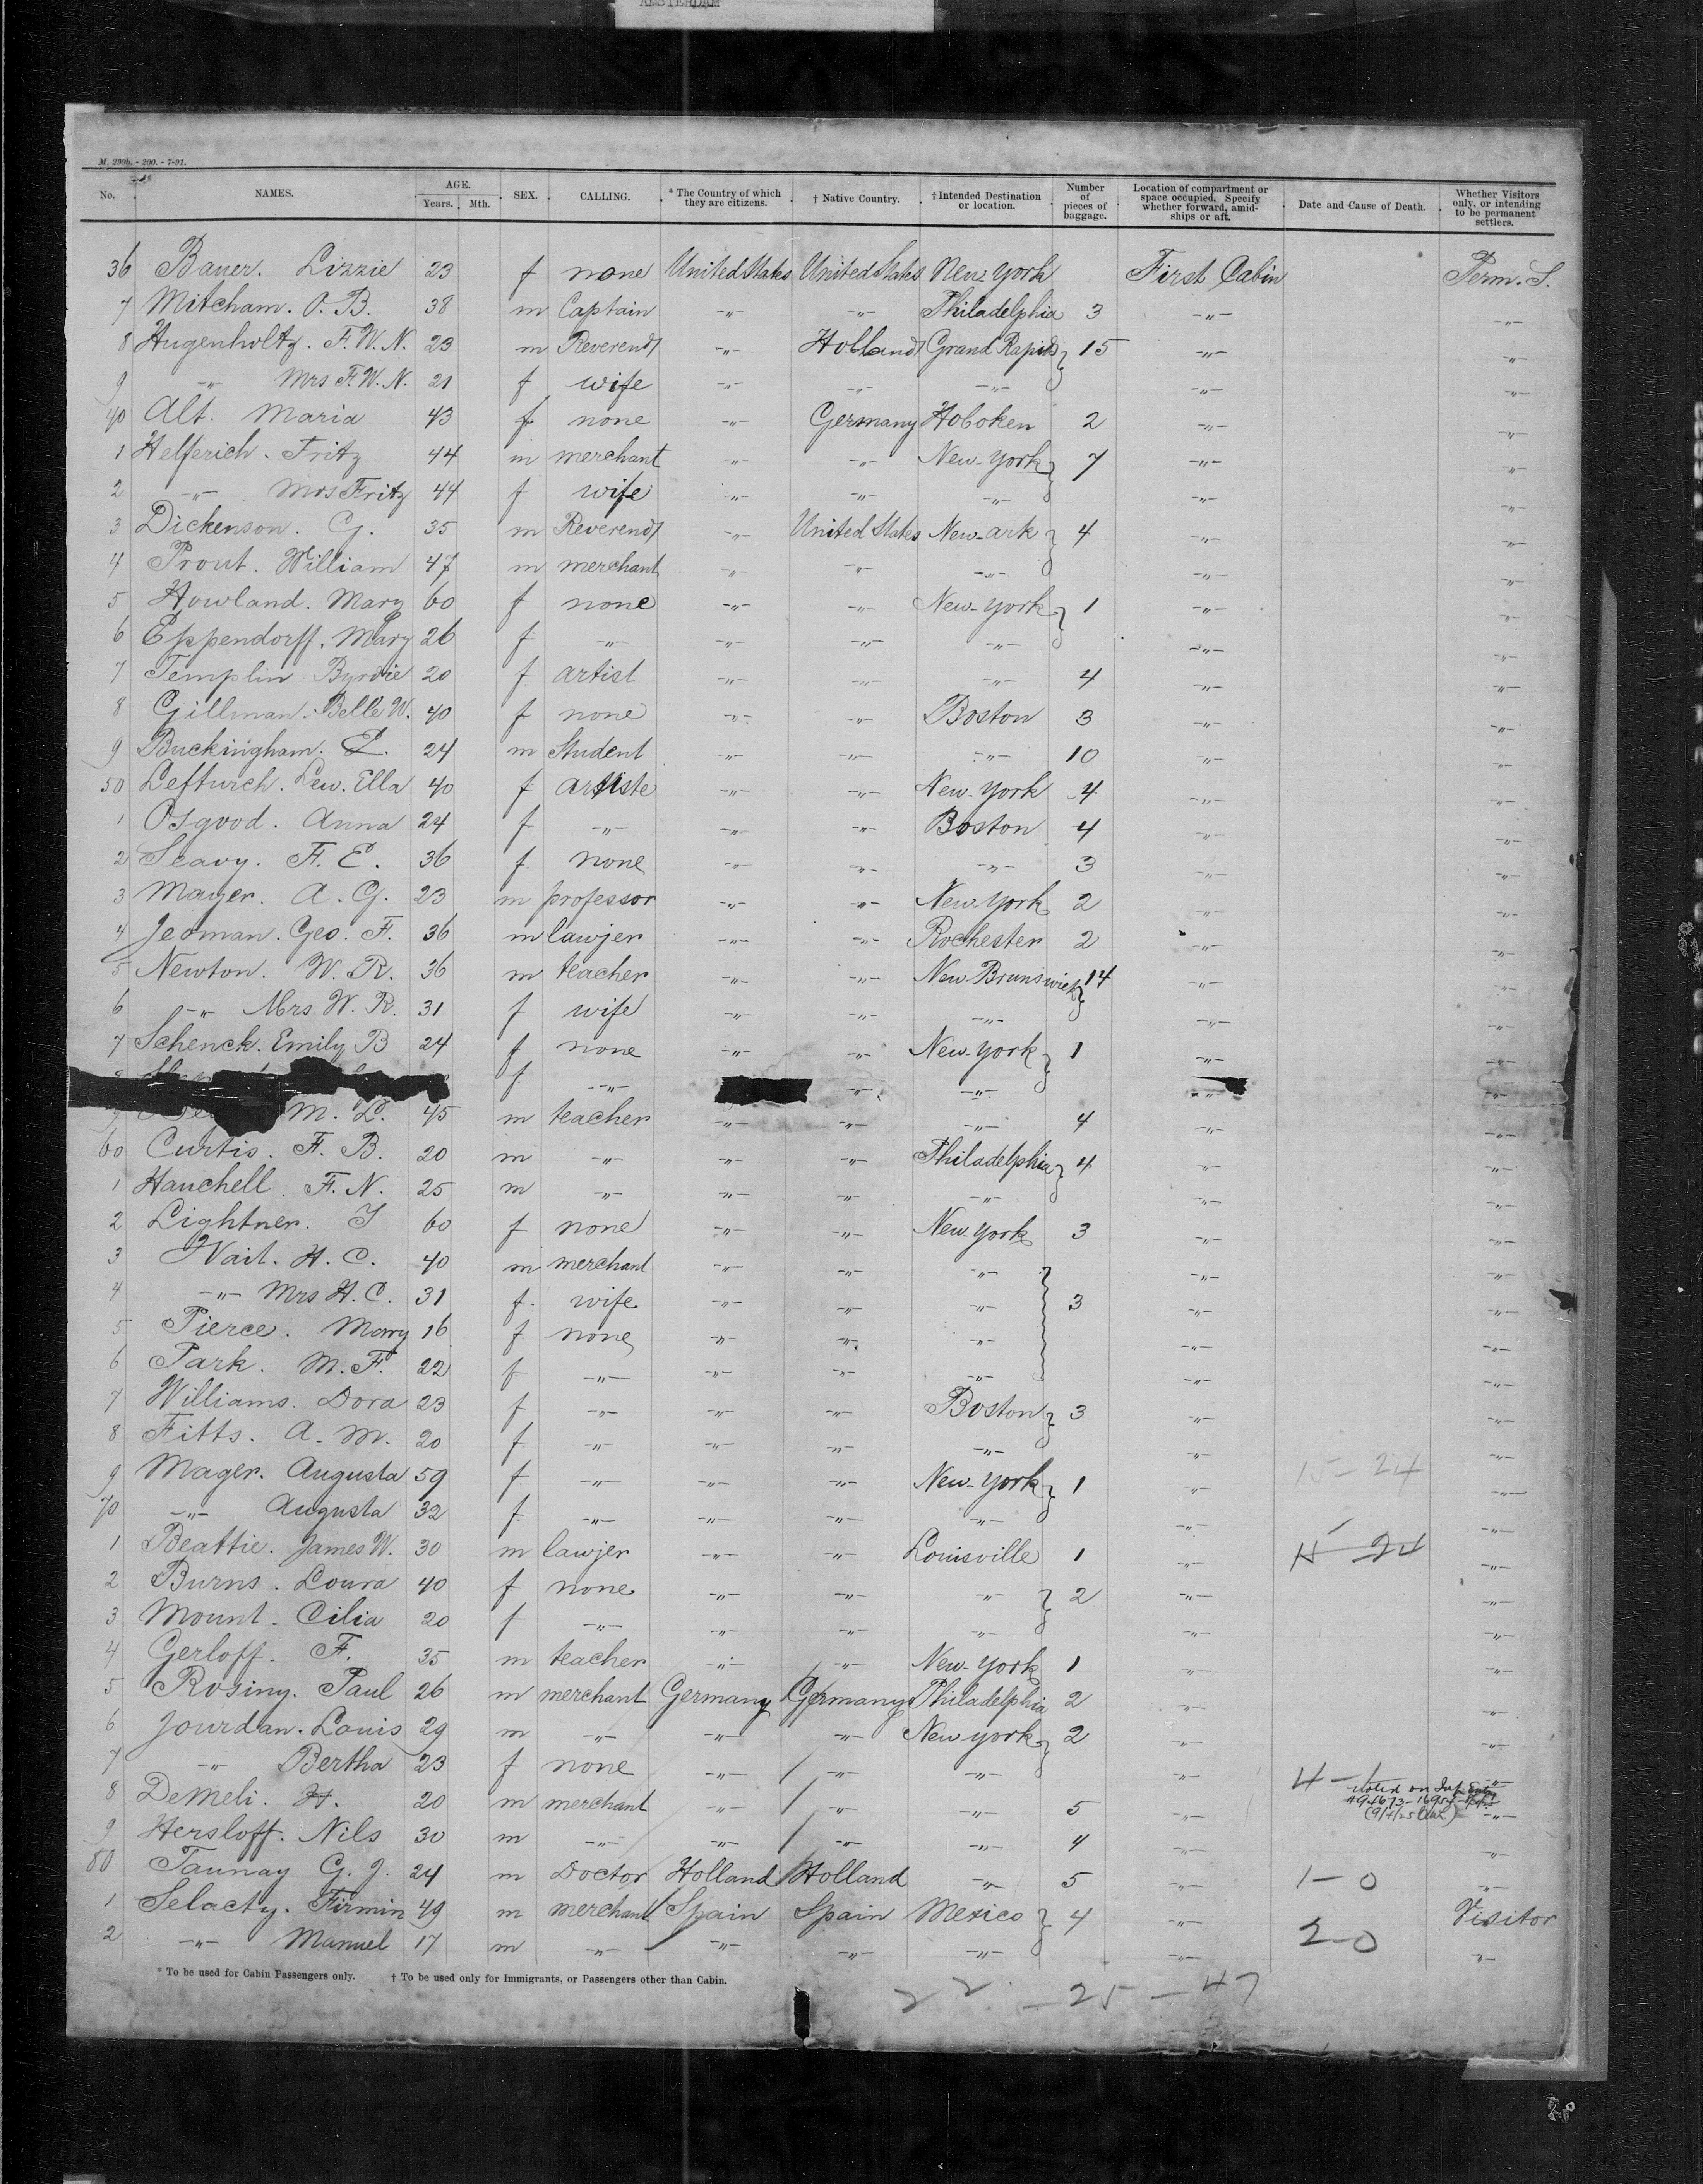 AMSTERDAM
M. 299b. - 200. - 7-91.
No. NAMES. AGE. Years. Mth. SEX. CALLING. * The Country of which they are citizens. † Native Country. † Intended Destination or location. Number of pieces of baggage. Location of compartment or space occupied. Specify whether forward, amidships or aft. Date and Cause of Death. Whether Visitors only, or intending to be permanent settlers.
36 Bauer. Lizzie 23 f none United States United States New-York First Cabin Perm. S.
7 Mitcham. O. B. 38 m Captain -"- -"- Philadelphia 3 -"- -"-
8 Hugenholtz. F. W. N. 23 m Reverend -"- Holland Grand Rapids } 15 -"- -"-
9 -"- Mrs F. W. N. 21 f wife -"- -"- -"- -"- -"-
40 Alt. Maria 43 f none -"- Germany Hoboken 2 -"- -"-
1 Helferich. Fritz 44 m merchant -"- -"- New-York } 7 -"- -"-
2 -"- Mrs Fritz 44 f wife -"- -"- -"- -"- -"-
3 Dickenson. G. 35 m Reverend -"- United States New-ark } 4 -"- -"-
4 Prout. William 47 m merchant -"- -"- -"- -"- -"-
5 Howland. Mary 60 f none -"- -"- New-York } 1 -"- -"-
6 Eppendorff. Mary 26 f -"- -"- -"- -"- -"- -"-
7 Templin. Byrdie 20 f artist -"- -"- -"- 4 -"- -"-
8 Gillman. Belle W. 40 f none -"- -"- Boston 3 -"- -"-
9 Buckingham. E. 24 m Student -"- -"- -"- 10 -"- -"-
50 Lefturch. Lew. Ella 40 f artiste -"- -"- New-York 4 -"- -"-
1 Osgood. Anna 24 f -"- -"- -"- Boston 4 -"- -"-
2 Seavy. F. E. 36 f none -"- -"- -"- 3 -"- -"-
3 Mayer. A. G. 23 m professor -"- -"- New-York 2 -"- -"-
4 Jeoman. Geo. F. 36 m lawjer -"- -"- Rochester 2 -"- -"-
5 Newton. W. R. 36 m teacher -"- -"- New-Brunswick } 14 -"- -"-
6 -"- Mrs W. R. 31 f wife -"- -"- -"- -"- -"-
7 Schenck. Emily B 24 f none -"- -"- New-York } 1 -"- -"-
f -"- -"- -"- -"- -"-
9 M. L. 45 m teacher -"- -"- -"- 4 -"- -"-
60 Curtis. F. B. 20 m -"- -"- -"- Philadelphia } 4 -"- -"-
1 Hauchell. F. N. 25 m -"- -"- -"- -"- -"- -"-
2 Lightner. I 60 f none -"- -"- New-York 3 -"- -"-
3 Nait. H. C. 40 m merchant -"- -"- -"- -"- -"-
4 -"- Mrs H. C. 31 f. wife -"- -"- -"- } 3 -"- -"-
5 Pierce. Mary 16 f none -"- -"- -"- -"- -"-
6 Park. M. F. 22 f -"- -"- -"- -"- -"- -"-
7 Williams. Dora 23 f -"- -"- -"- Boston } 3 -"- -"-
8 Fitts. A. M. 20 f -"- -"- -"- -"- -"- -"-
9 Mager. Augusta 59 f -"- -"- -"- New-York } 1 -"- 15-24 -"-
70 -"- Augusta 32 f -"- -"- -"- -"- -"- -"-
1 Beattie. James W. 30 m lawjer -"- -"- Louisville 1 -"- 15 24 -"-
2 Burns. Loura 40 f none -"- -"- -"- } 2 -"- -"-
3 Mount. Cilia 20 f -"- -"- -"- -"- -"- -"-
4 Gerloff. F. 35 m teacher -"- -"- New-York 1 -"- -"-
5 Rosiny. Paul 26 m merchant Germany Germany Philadelphia 2 -"- -"-
6 Jourdan. Louis 29 m -"- -"- -"- New york } 2 -"- -"-
7 -"- Bertha 23 f none -"- -"- -"- -"- 4-1 -"-
8 DeMeli. H. 20 m merchant -"- -"- -"- 5 -"- -"-
9 Hersloff. Nils 30 m -"- -"- -"- -"- 4 -"- -"-
80 Taunay G. J. 24 m Doctor Holland Holland -"- 5 -"- 1-0 -"-
1 Selacty. Firmin 49 m merchant Spain Spain Mexico } 4 -"- Visitor
2 -"- Manuel 17 m -"- -"- -"- -"- -"- 2-0 -"-
* To be used for Cabin Passengers only. † To be used only for Immigrants, or Passengers other than Cabin.
22 - 25 - 47